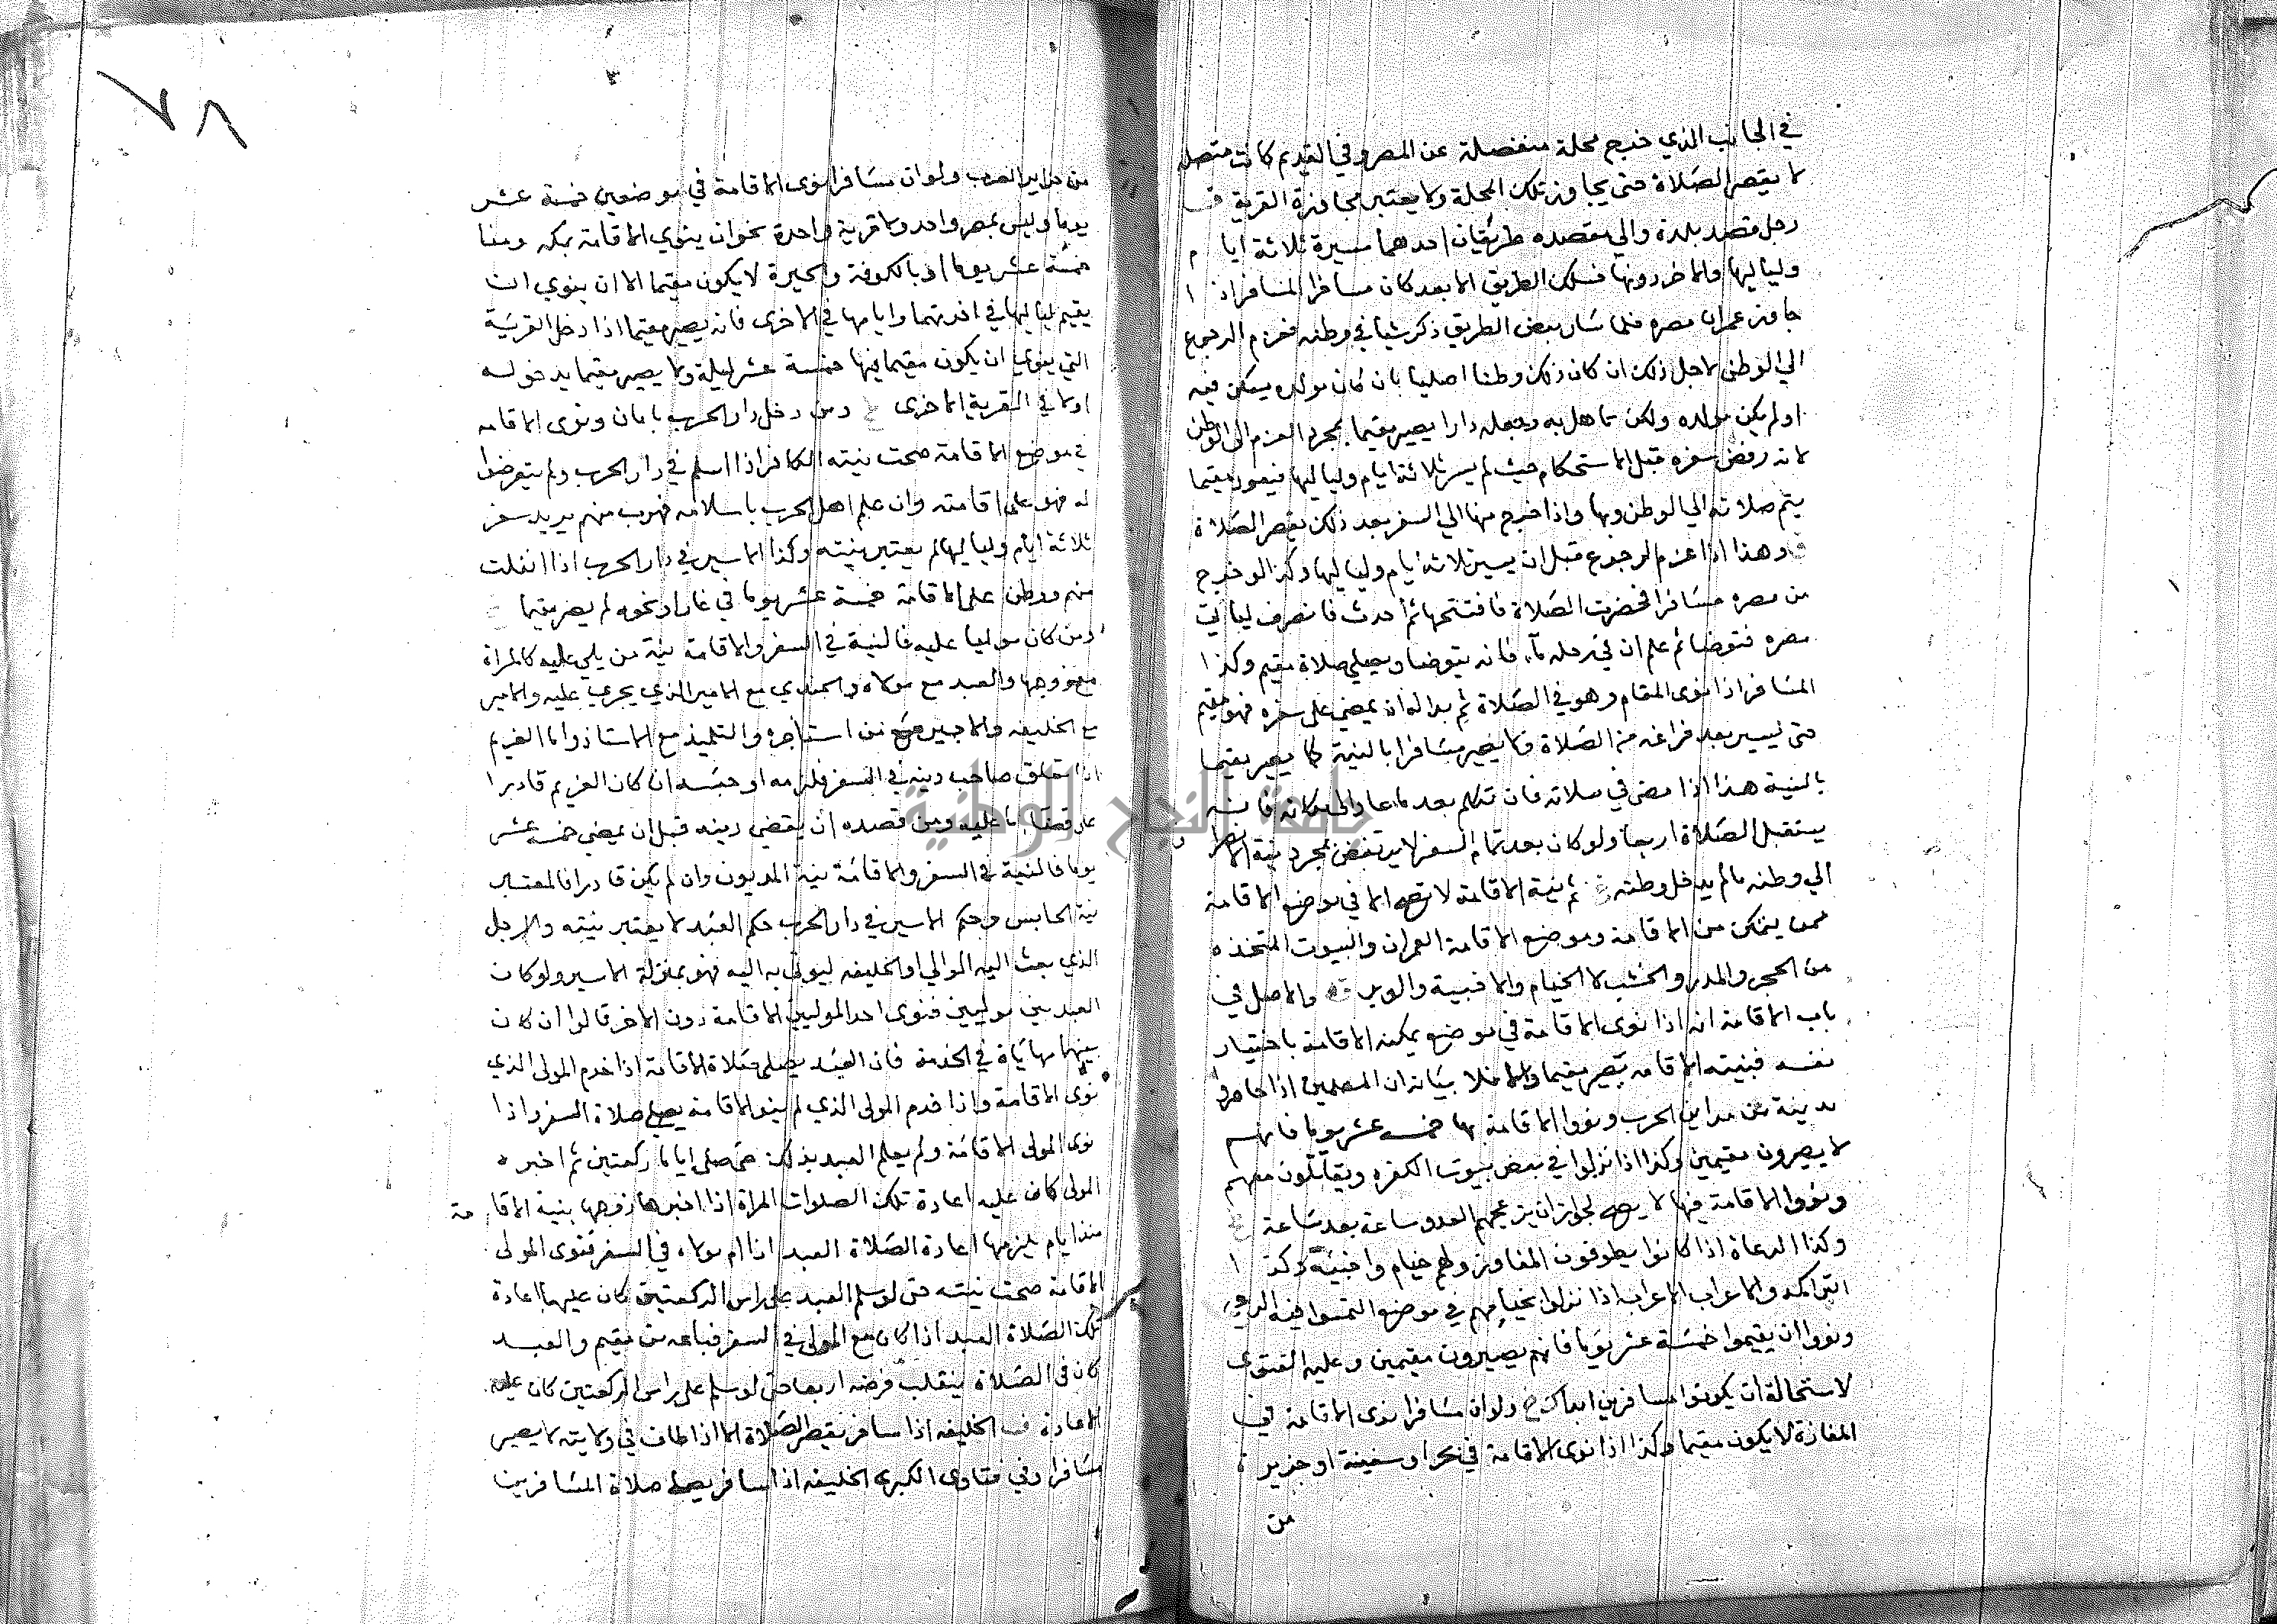 في الجانب الذي خرج محلة منفصلة عن المصر وفي القديم كانت متصلة
لا يقصر الصلاة حتى يجاوز تلك المحلة ولا يعتبر مجاوزة القرية ف
رجل قصد بلدة والى مقصده طريقان احدهما مسيرة ثلاثة ايام
ولياليها والاخر دونها فسلك الطريق الابعد كان مسافرا المسافر اذا
جاوز عمران مصره فلما سار بعض الطريق ذكر شيأ في وطنه فعزم الرجوع
الى الوطن لاجل ذلك ان كان ذلك وطنا اصليا بان كان مولده يسكن فيه
او لم يكن مولده ولكن تاهل به وجعله دارا يصير مقيما بمجرد العزم الى الوطن
لانه رفض سفره قبل الاستحكام حيث لم يسر ثلاثة ايام ولياليها فيعود مقيما
يتم صلاته الى الوطن وبها واذا خرج منها الى السفر بعد ذلك يقصر الصلاة
وهذا اذا عزم الرجوع قبل ان يسير ثلاثة ايام ولياليها وكذا لو خرج
من مصره مسافرا فحضرت الصلاة فافتتحها ثم احدث فانصرف لياتي
مصره فتوضا ثم علم ان في رحله ماء فانه يتوضا ويصلي صلاة مقيم وكذا
المسافر اذا نوى المقام وهو في الصلاة ثم بدا له ان يمضي على سفره فهو مقيم
حتى يسير بعد فراغه من الصلاة ولا يصير مسافرا بالنية كما يصير مقيما
بالنية هذا اذا مضى في صلاته فان تكلم بعد ما عاد الى مكانه فانه
يستقبل الصلاة اربعا ولو كان بعد تمام السفر لا يرتفض بمجرد نية الانصراف
الى وطنه ما لم يدخل وطنه ثم نية الاقامة لا تصح الا في موضع الاقامة
ممن يتمكن من الاقامة وموضع الاقامة العمران والبيوت المتخذة
من الحجر والمدر والخشب لا الخيام والاخبية والوبر والاصل في
باب الاقامة انه اذا نوى الاقامة في موضع يمكنه الاقامة باختيار
نفسه فبنيته الاقامة يصير مقيما والا فلا بيانه ان المسلمين اذا حاصروا
مدينة من مداين الحرب ونووا الاقامة بها خمسة عشر يوما فانهم
لا يصيرون مقيمين وكذا اذا نزلوا في بعض بيوت الكفرة ويقاتلون معهم
ونووا الاقامة فيها لا يصح لجواز ان يزعجهم العدو ساعة بعد ساعة
وكذا الرعاة اذا كانوا يطوفون المفاوز ولهم خيام واخبية وكذا
التراكمة والاعراب اذا نزلوا بخيامهم في موضع التمسوا فيه الرعي
ونووا ان يقيموا خمسة عشر يوما فانهم يصيرون مقيمين وعليه الفتوى
لاستحالة ان يكونوا مسافرين ابدا ولو ان مسافرا نوى الاقامة في
المفازة لا يكون مقيما وكذا اذا نوى الاقامة في بحر او سفينة او جزيرة
من
٧٨
من جزاير العرب ولو ان مسافرا نوى الاقامة في موضعين خمسة عشر
يوما وليس بمصر واحد ولا قرية واحدة نحو ان ينوي الاقامة بمكة ومنا
خمسة عشر يوما او بالكوفة والحيرة لا يكون مقيما الا ان ينوي ان
يقيم لياليها في احدتهما وايامها في الاخرى فانه يصير مقيما اذا دخل القرية
التي ينوي ان يكون مقيما فيها خمسة عشر ليلة ولا يصير مقيما بدخوله
اولا في القرية الاخرى ومن دخل دار الحرب بامان ونوى الاقامة
في موضع الاقامة صحت نيته الكافر اذا اسلم في دار الحرب ولم يتعرضوا
له فهو على اقامته وان علم اهل الحرب باسلامه فهرب منهم يريد سفر
ثلاثة ايام ولياليها لم يعتبر نيته وكذا الاسير في دار الحرب اذا انفلت
منهم ووطن على الاقامة خمسة عشر يوما في غار او نحوه لم يصر مقيما
ومن كان موليا عليه فالنية في السفر والاقامة نية من يلي عليه كالمراة
مع زوجها والعبد مع مولاه والجندي مع الامير الذي يجري عليه والامير
مع الخليفة والاجير مع من استاجره والتلميذ مع الاستاذ واما الغريم
اذا تعلق صاحب دينه في السفر فلزمه او حبسه ان كان الغريم قادرا
على قضاء ما عليه ومن قصده ان يقضي دينه قبل ان يمضي خمسة عشر
يوما فالنية في السفر والاقامة نية المديون وان لم يكن قادرا فالمعتبر
نية الحابس وحكم الاسير في دار الحرب حكم العبد لا يعتبر نيته والرجل
الذي بعث اليه الوالي او الخليفة ليوتى به اليه فهو بمنزلة الاسير ولو كان
العبد بين موليين فنوى احد الموليين الاقامة دون الاخر قالوا ان كان
بينهما مهاياة في الخدمة فان العبد يصلي صلاة الاقامة اذا خدم المولى الذي
نوى الاقامة واذا خدم المولى الذي لم ينو الاقامة يصلي صلاة السفر واذا
نوى المولى الاقامة ولم يعلم العبد بذلك حتى صلى اياما ركعتين ثم اخبره
المولى كان عليه اعادة تلك الصلوات المراة اذا اخبرها زوجها بنية الاقامة
منذ ايام يلزمها اعادة الصلاة العبد اذا ام مولاه في السفر فنوى المولى
الاقامة صحت نيته حتى لو سلم العبد على راس الركعتين كان عليهما اعادة
تلك الصلاة العبد اذا كان مع المولى في السفر فباعه من مقيم والعبد
كان في الصلاة ينقلب فرضه اربعا حتى لو سلم على راس الركعتين كان عليه
الاعادة ف الخليفة اذا سافر يقصر الصلاة الا اذا طاف في ولايته لا يصير
مسافرا وفي فتاوى الكبرى الخليفة اذا سافر يصلي صلاة المسافرين
جامعة النجاح الوطنية